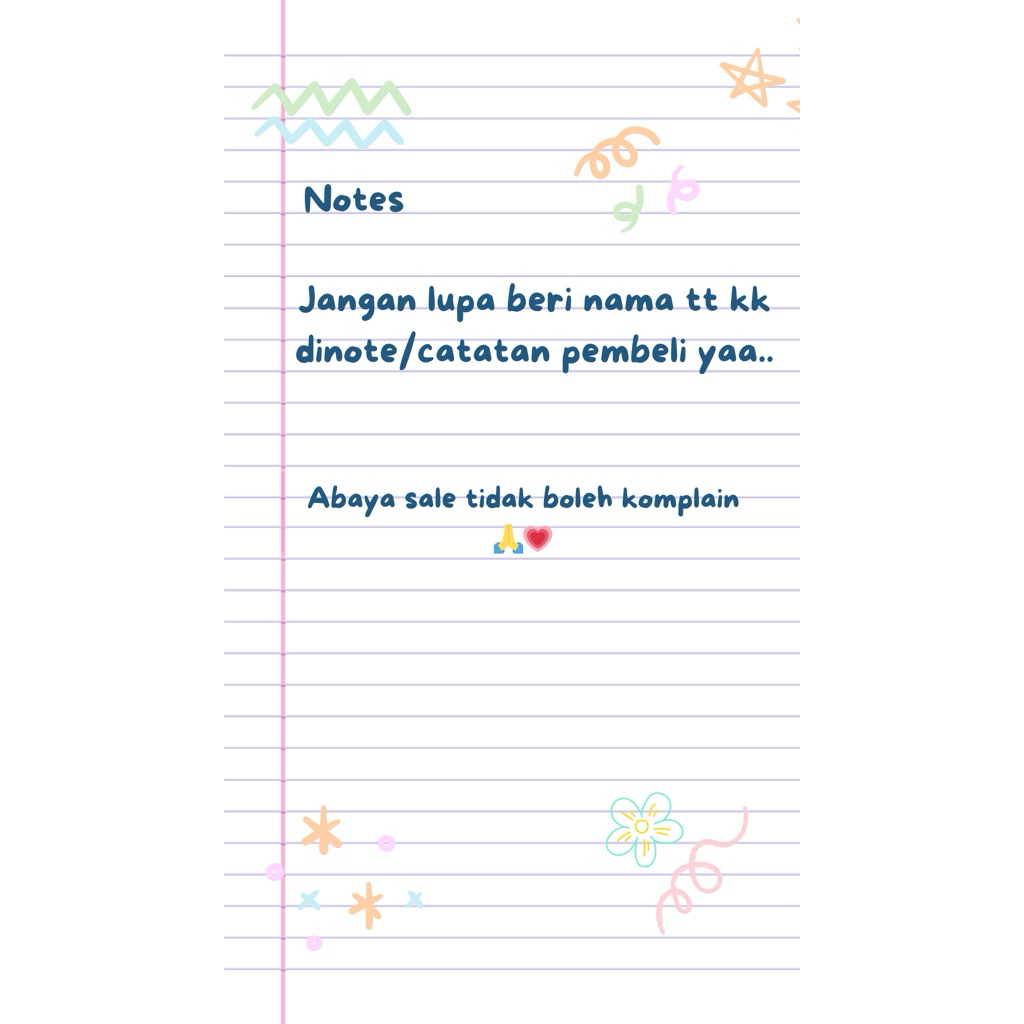 Notes
Jangan lupa beri nama tt kk
dinote/catatan pembeli yaa..
Abaya sale tidak boleh komplain
🙏💗